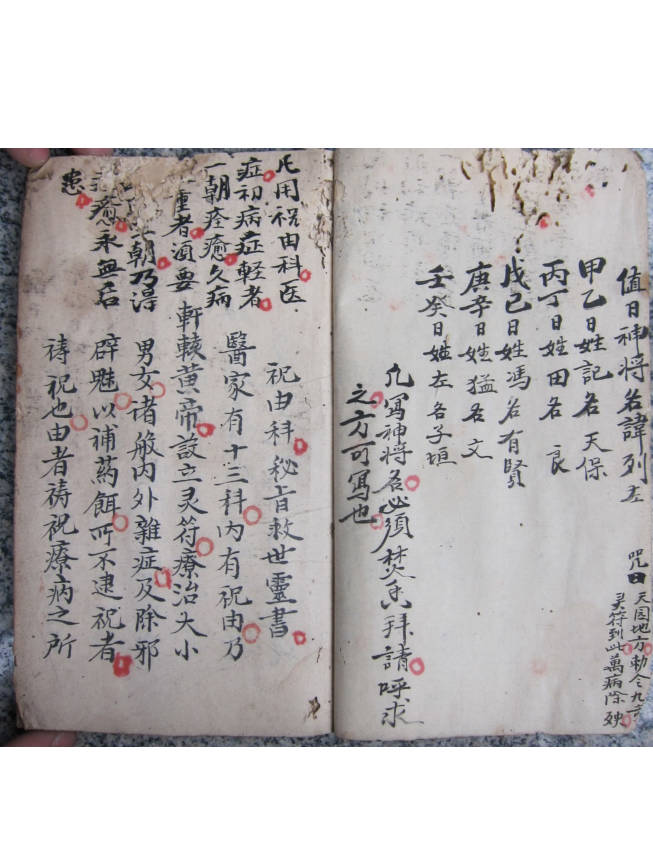 值日神將名諱列左
甲乙日姓記名天保
丙丁日姓田名良
戊己日姓馮名有賢
庚辛日姓猛名文
壬癸日姓左名子垣
凡寫神將名必須焚香拜請呼求
之方可寫也
咒曰天圓地方勅令九章
灵符到此萬病除殃
凡用祝由科医
症初病症輕者
一朝痊癒久病
重者須要
朝乃得
癒永無后
患
祝由科秘旨救世靈書
醫家有十三科內有祝由乃
軒轅黃帝設立灵符療治大小
男女诸般内外雜症及除邪
辟魅以補藥餌所不逮祝者
祷祝也由者祷祝療病之所